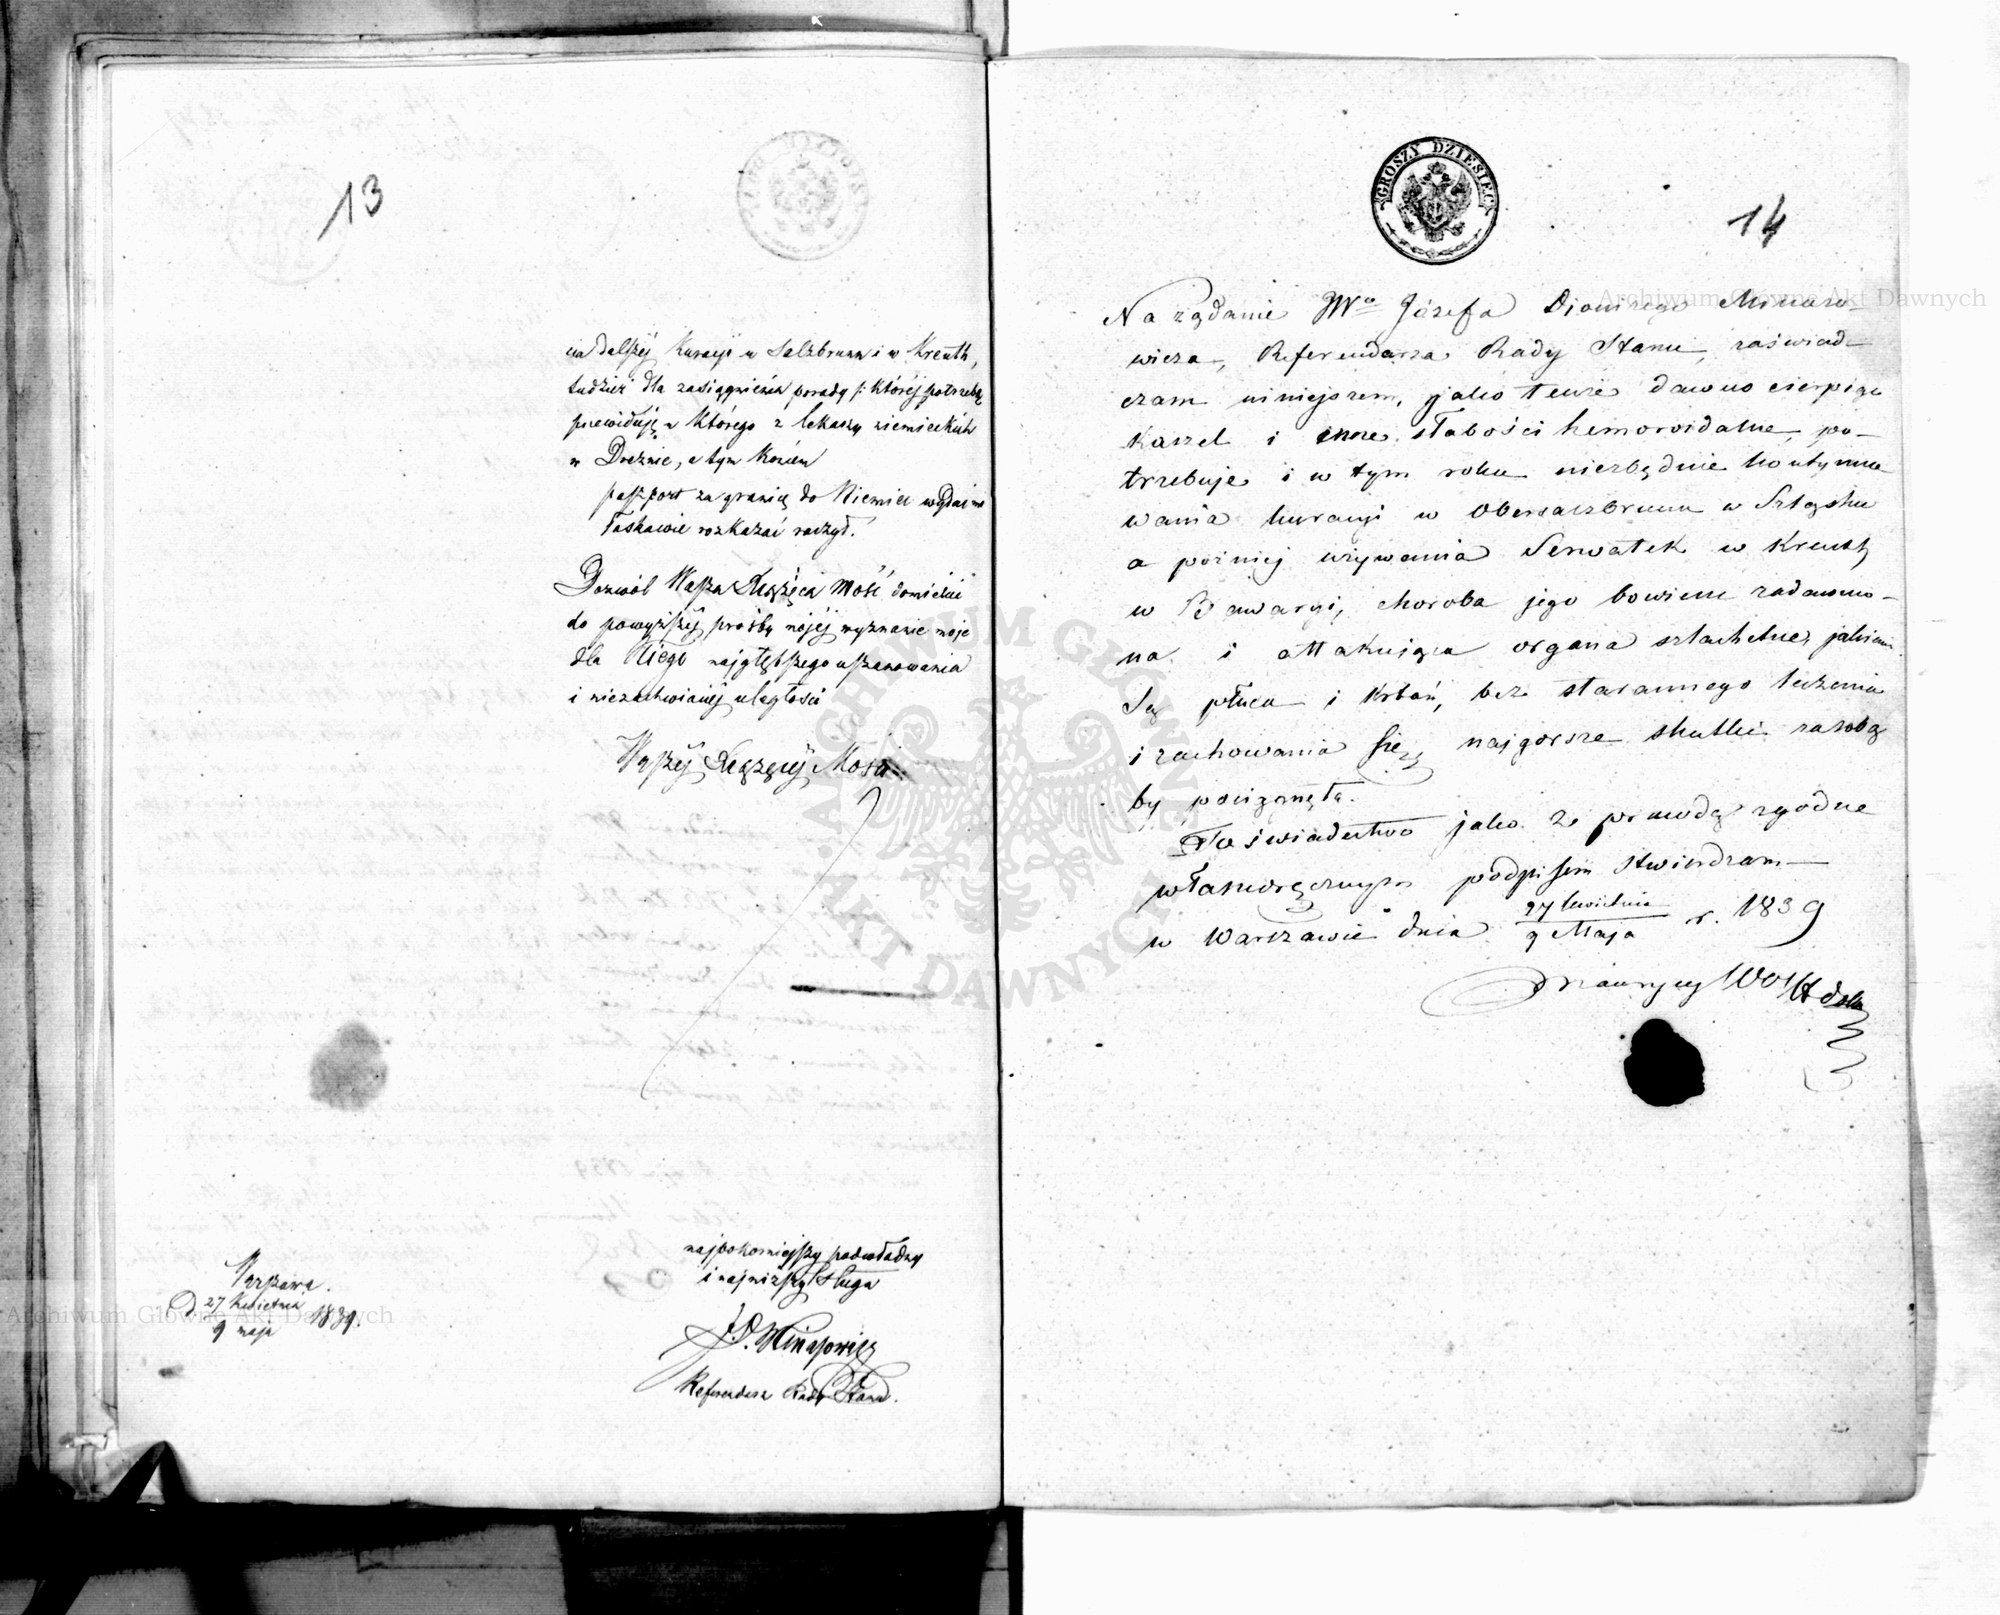 13
cia dalszéj Kuracji w Salzbrunn i w Kreuth,
tudzież dla zasiągnienia porady /: któréj potrzebę
przewiduję u którego z lekarzy niemieckich
w Dreznie, a tym końcem
paszport za granicę do Niemiec wydać mi
łaskawie rozkazać raczył.
Dozwól Wasza Książęca Mość domieścić
do powyższéj prośby mojéj wyznanie moje
dla Niego najgłębszego uszanowania
i niezachwianéj uległości
Waszéj Książęcéj Mości
najpokorniejszy podwładny
i najniższy Sługa
J.D. Minasowicz
Referendarz Rady Stanu.
Warszawa.
d 27 Kwietnia
9 maja 1839.
GROSZY DZIESIEC
14
Na żądanie JWo Józefa Dionizego Minaso-
wicza, Referendarza Rady Stanu, zaświad-
czam niniejszem, jako tenże dawno cierpiąc
kaszel i inne słabości hemoroidalne, po-
trzebuje i w tym roku niezbędnie kontynuo
wania kuracyi w Obersalzbrunn w Szląsku
a poźniej używania Serwatek w Kreuth
w Bawaryi, choroba jego bowiem zadawnio-
na i attakuiąca organa szlachetne, jakiemi
są płuca i krtań, bez starannego leczenia
i zachowania się, najgorsze skutki za sobą
by pociągnęła.
To świadectwo jako z prawdą zgodne
własnoręcznym podpisem stwierdzam
w Warszawie dnia 27 kwietnia
9 Maja r. 1839
Maurycy Wolff dr
Archiwum Główne Akt Dawnych
Archiwum Główne Akt Dawnych
ARCHIWUM GŁÓWNE AKT DAWNYCH